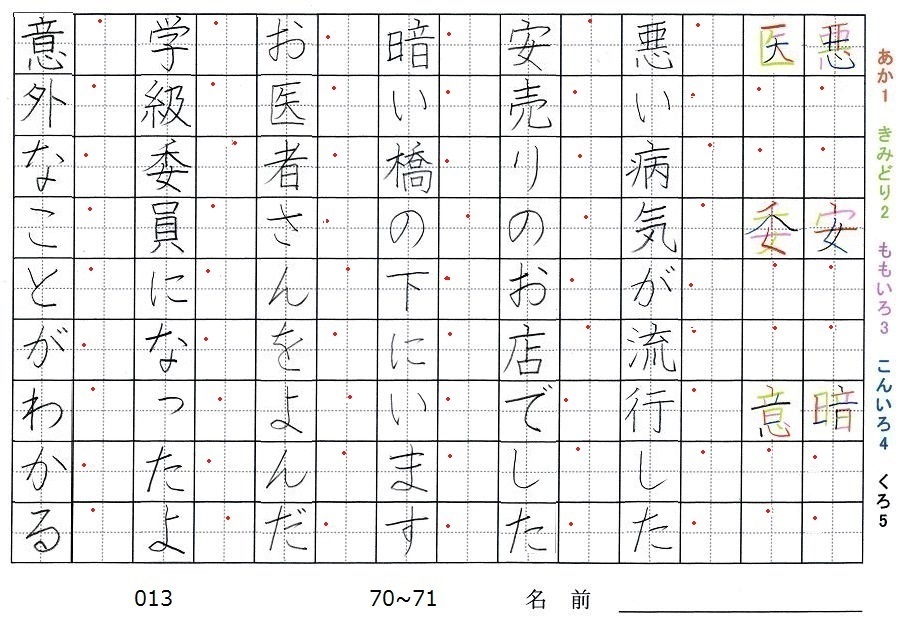 あか1 きみどり2 ももいろ3 こんいろ4 くろ5
悪安暗
医委意
悪い病気が流行した
安売りのお店でした
暗い橋の下にいます
お医者さんをよんだ
学級委員になったよ
意外なことがわかる
013 70~71 名前